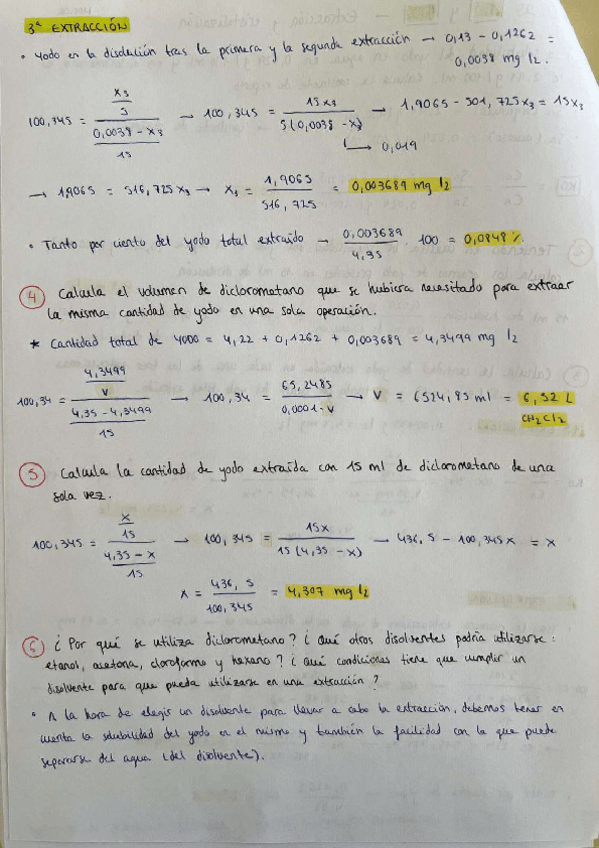 3ª EXTRACCIÓN
• Yodo en la disolución tras la primera y la segunda extracción → 0,13 - 0,1262 =
0,0038 mg I2.
100,345 = (x3 / 5) / ((0,0038 - x3) / 15) → 100,345 = 15x3 / 5(0,0038 - x3) → 1,9065 - 501,725x3 = 15x3
↳ 0,019
→ 1,9065 = 516,725x3 → x3 = 1,9065 / 516,725 = 0,003689 mg I2
• Tanto por ciento del yodo total extraído → 0,003689 / 4,35 · 100 = 0,0848 %
4 Calcula el volumen de diclorometano que se hubiera necesitado para extraer
la misma cantidad de yodo en una sola operación.
* Cantidad total de yodo = 4,22 + 0,1262 + 0,003689 = 4,3499 mg I2
100,34 = (4,3499 / V) / ((4,35 - 4,3499) / 15) → 100,34 = 65,2485 / 0,0001·V → V = 6524,85 ml = 6,52 L
CH2Cl2
5 Calcula la cantidad de yodo extraída con 15 ml de diclorometano de una
sola vez.
100,345 = (x / 15) / ((4,35 - x) / 15) → 100,345 = 15x / 15(4,35 - x) → 436,5 - 100,345x = x
x = 436,5 / 100,345 = 4,307 mg I2
6 ¿Por qué se utiliza diclorometano? ¿Qué otros disolventes podría utilizarse:
etanol, acetona, cloroformo y hexano? ¿Qué condiciones tiene que cumplir un
disolvente para que pueda utilizarse en una extracción?
• A la hora de elegir un disolvente para llevar a cabo la extracción, debemos tener en
cuenta la solubilidad del yodo en el mismo y también la facilidad con la que puede
separarse del agua (del disolvente).